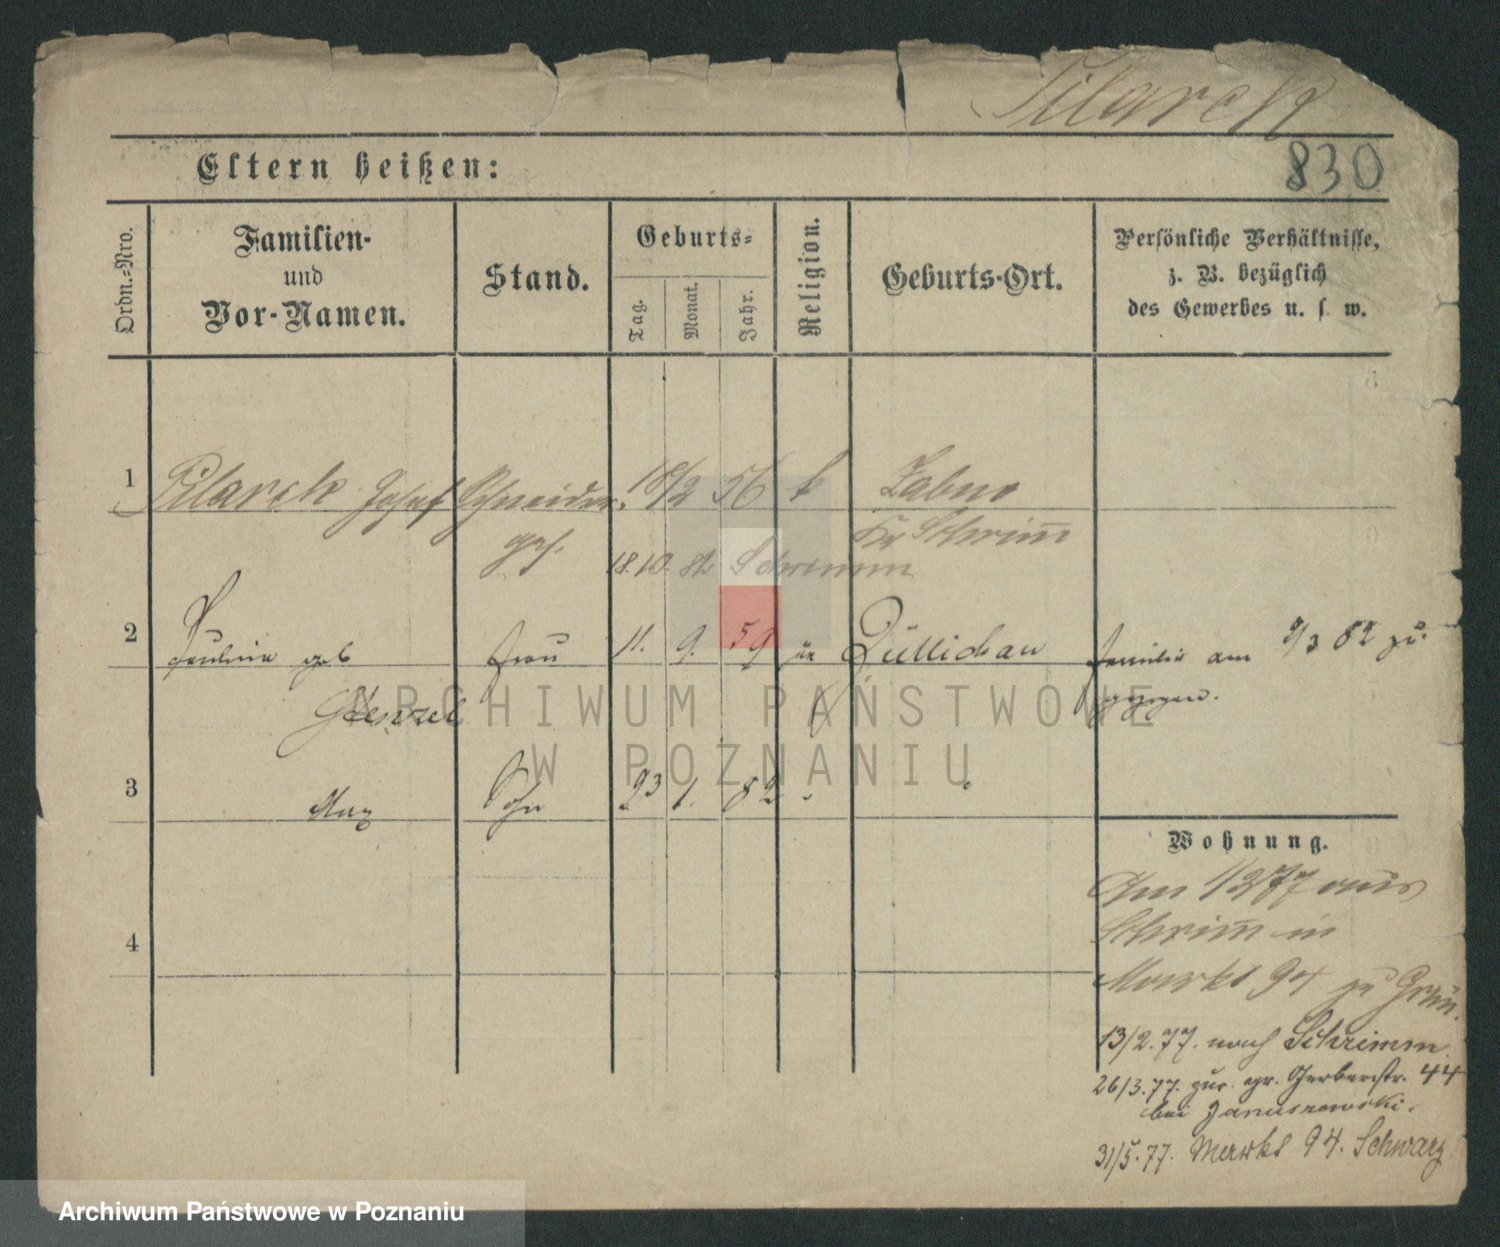 Pilarek
830
Eltern heißen:
Ordn.-Nro.
Familien-
und
Vor-Namen.
Stand.
Geburts-
Tag.
Monat.
Jahr.
Religion.
Geburts-Ort.
Persönliche Verhältnisse,
z. B. bezüglich
des Gewerbes u. s. w.
1 Pilarek Josef Schneider. 18/2 56 k Zabno
ges. Kr Schrim̅
18. 10. 82 Schrimm
2 Pauline geb Frau 11. 9. 59 Züllichau Familie am 9/3 82 zu
Henzel gezogen.
3 Max Sohn 23 1. 82
4
Wohnung.
Am 1/2 77 aus
Schrim̅ in
Markt 94 zu Grün.
13/2. 77. nach Schrimm.
26/3. 77. zur. gr. Gerberstr. 44
bei Januszewski.
31/5. 77. Markt 94. Schwarz
ARCHIWUM PAŃSTWOWE
W POZNANIU
Archiwum Państwowe w Poznaniu